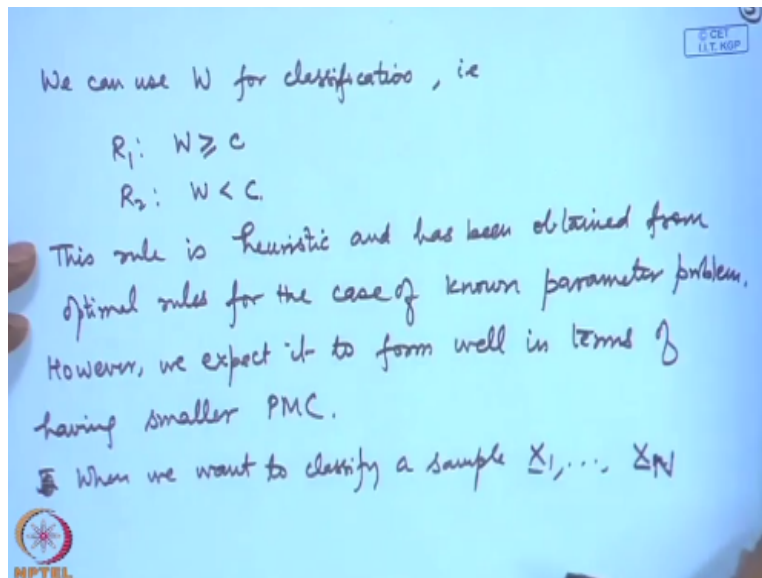 © CET
I.I.T. KGP
We can use W for classification, ie
R₁: W ≥ C
R₂: W < C.
This rule is heuristic and has been obtained from
optimal rules for the case of known parameter problem.
However, we expect it to form well in terms of
having smaller PMC.
When we want to classify a sample X̲₁, ..., X̲N
NPTEL